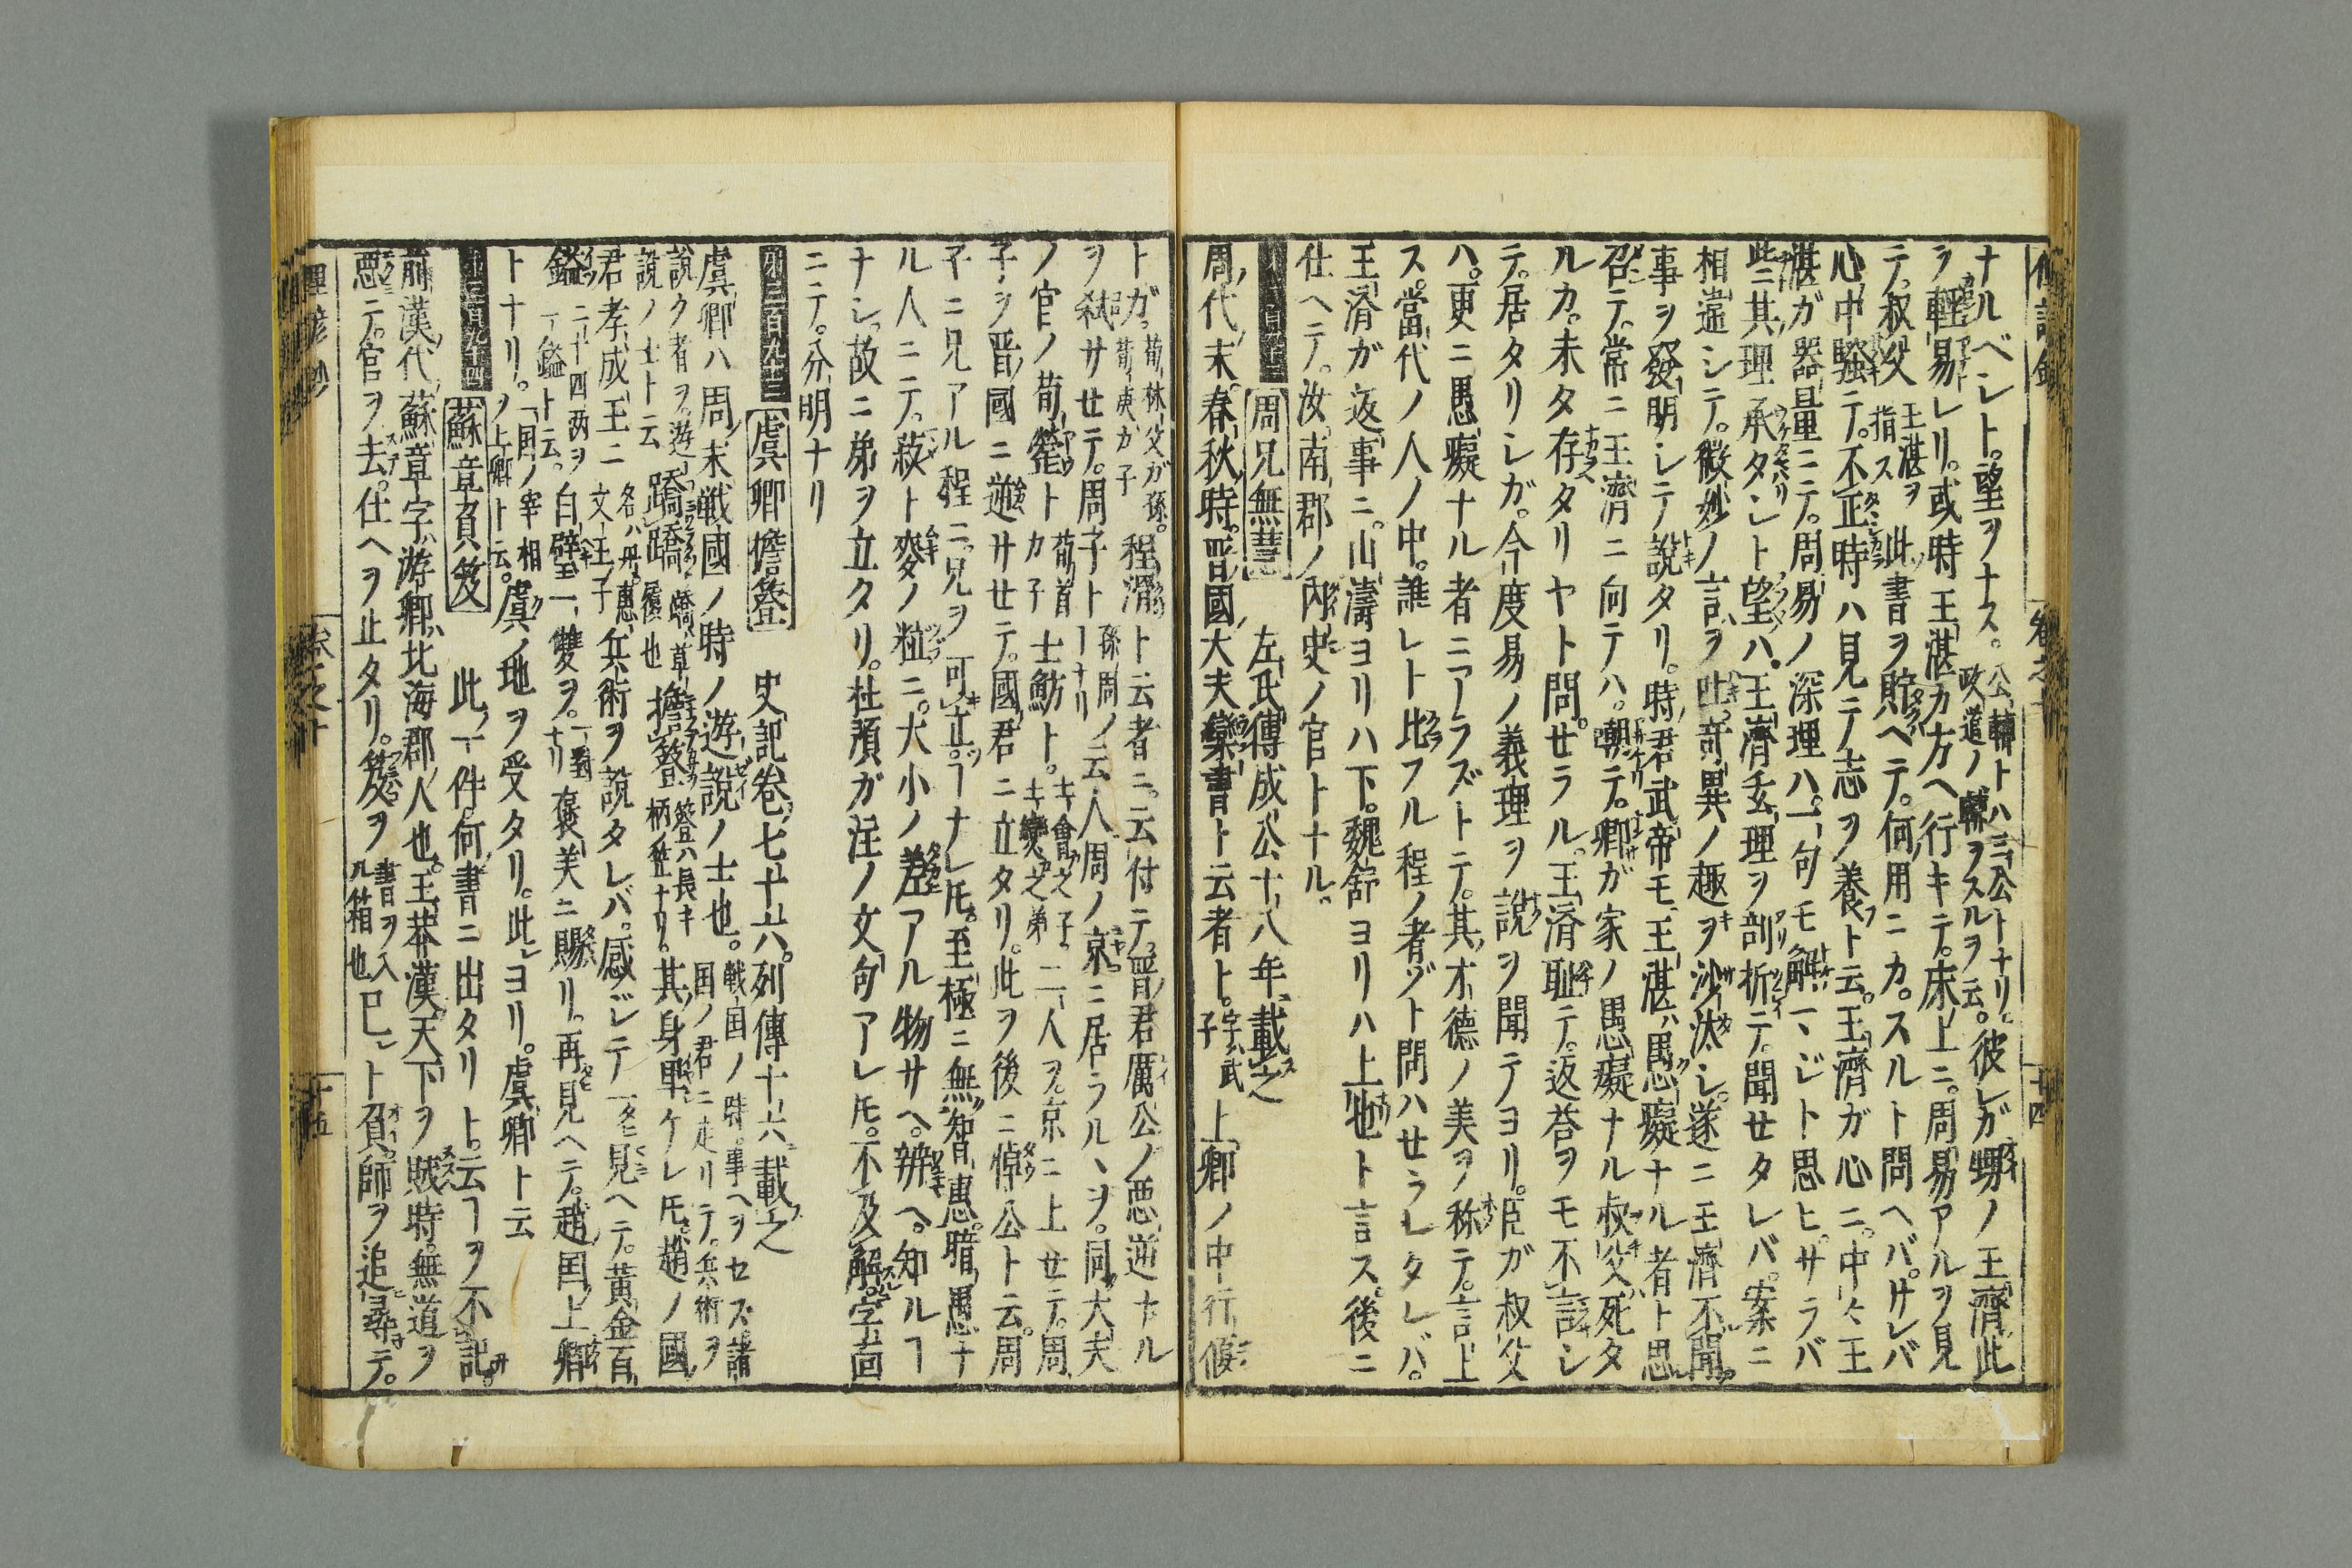 ナルベシト。望ヲナス。公輔トハ三公トナリ。政道ノ輔ヲスルヲ云。彼レガ甥ノ王濟此
ヲ輕易レリ。或時王湛カ方ヘ行キテ。床上ニ。周易アルヲ見
テ。叔父王湛ヲ指ス此書ヲ貯ヘテ。何用ニカ。スルト問ヘバ。サレバ
心中騒テ。不正時ハ見ニテ志ヲ養ト云。王濟ガ心ニ。中々王
湛ガ器量ニテ。周易ノ深理ハ。一句モ解ヽジト思ヒ。サラバ
此ニ其理承タシト望ハ。王濟玄理ヲ剖析テ。聞セタレバ。案ニ
相違シテ。微妙ノ言ヲ吐。奇異ノ趣ヲ沙汰シ。遂ニ王濟不聞
事ヲ發明シテ説タリ。時君武帝モ王湛ハ愚癡ナル者ト思
召テ。常ニ王濟ニ向テハ。朝テ。卿ガ家ノ愚癡ナル叔父。死タ
ルカ。未タ存タリヤト問。セラル。王濟耻テ。返荅ヲモ不言シ
テ。居タリシガ。今度易ノ義理ヲ説ヲ聞テノヨリ。臣ガ叔父
ハ。更ニ愚癡ナル者ニアラズトテ。其才德ノ美ヲ称テ。言上
ス。當代ノ人ノ中。誰レト比フル程ノ者ゾト問ハせラレタレバ。
王濟ガ返事ニ。山濤ヨリハ下。魏舒ヨリハ上也ト言ス。後ニ
仕ヘテ。汝南郡ノ内史ノ官トナル。
周兄無慧 左氏傳成公十八年載之
周代末春秋時。晋國大夫欒書ト云者ト。字ハ武子上卿ノ中行偃
トガ。荀林父ガ孫。荀庚カ子程滑ト云者ニ。云付テ晋君厲公ノ悪逆ナル
ヲ弑サせテ。周子ト孫周ノ云人周ノ京ニ居ラルヽヲ。同大夫
ノ官ノ荀罃トカ子荀首士魴ト。士會之子士燮之弟二人ヲ京ニ上せテ。周
子ヲ晋國ニ迎サせテ。國君ニ立タリ。此ヲ後ニ悼公ト云。周
子ニ兄アル程ニ。兄ヲ可立ヿナレ𪜈。至極ニ無智惠。暗愚ナ
ル人ニテ。菽ト麥ノ粒ニ。大小ノ差アル物サヘ。辨ヘ。知ルヿ
ナシ。故ニ弟ヲ立タリ。杜預ガ注ノ文句アレ𪜈。不及解。字面
ニテ。分明ナリ
虞卿儋簦 史記卷七十六。列傳十六載之
虞卿ハ周末戦國ノ時ノ遊説ノ士也。戦国ノ時。事ヘヲセズ諸国ノ君ニ走リテ。兵術ヲ
説ク者ヲ。遊説ノ士ト云蹻蹻草履也擔簦簦ハ長キ柄ノ笠ナリ。其身卑ケレ𪜈。趙ノ國
君孝成王ニ名ハ丹。惠文王子兵術ヲ説タレバ。感ジテ一タヒ見ヘテ。黄金百
鎰二十四两ヲ一鎰ト云。白璧一雙ヲ。一對ナリ褒美ニ賜リ。再見ヘテ。趙国上卿
トナリ。国ノ宰相ヲ上卿ト云。虞ノ地ヲ受タリ。此レヨリ。虞卿ト云
蘇章負笈 此ノ一件。何書ニ出タリト。云ヿヲ不記
前漢代蘇章字游卿。北海郡人也。王莽漢天下ヲ賊時。無道ヲ
悪テ。官ヲ去。仕ヘヲ止タリ。笈ヲ書ヲ入ル箱也巳レト負。師ヲ追尋テ。
理諺抄 卷之十 十五